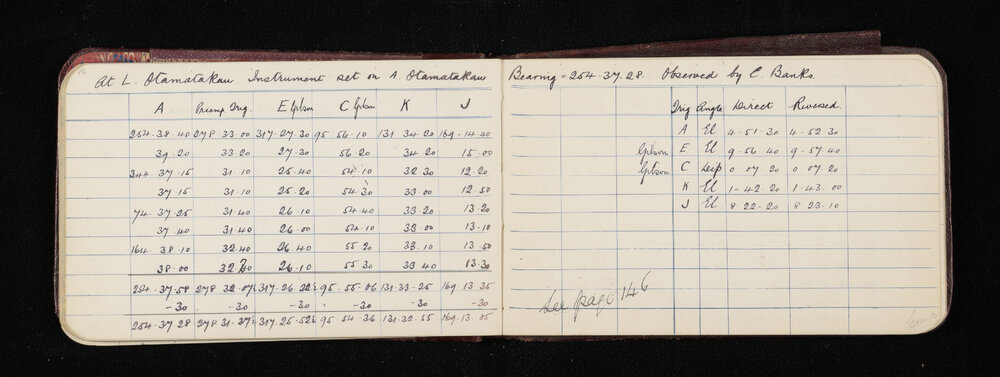 At L. Otamatakau. Instrument set on A. Otamatakau
A Prelim Trig E Gibson C Gibson K J
254.38.40 278.33.00 317.27.30 95.56.10 131.34.20 169.14.40
39.20 33.20 27.30 56.20 34.20 15.00
344.37.15 31.10 25.40 54.10 32.30 12.20
37.15 31.10 25.20 54.30 33.00 12.50
74.37.25 31.40 26.10 54.40 33.20 13.20
37.40 31.40 26.00 54.10 33.00 13.10
164.38.10 32.40 26.40 55.20 33.10 13.50
38.00 32.20 26.10 55.30 33.40 13.30
254.37.58 278 32.07½ 317.26.22½ 95.55.06 131.33.25 169.13.35
-30 -30 -30 -30 -30 -30
254.37 28 278 31.37½ 317.25.52½ 95.54.36 131.32.55 169.13.05
Bearing = 254.37.28. Observed by C. Banks.
Trig Angle Direct Reversed.
A El 4-51.30 4-52.30
Gibson E El 9-56 40 9-57.40
Gibson C Dip 0 07.20 0 07.20
K El 1-42.20 1-43.00
J El 8-22-20 8-23.10
See page 146